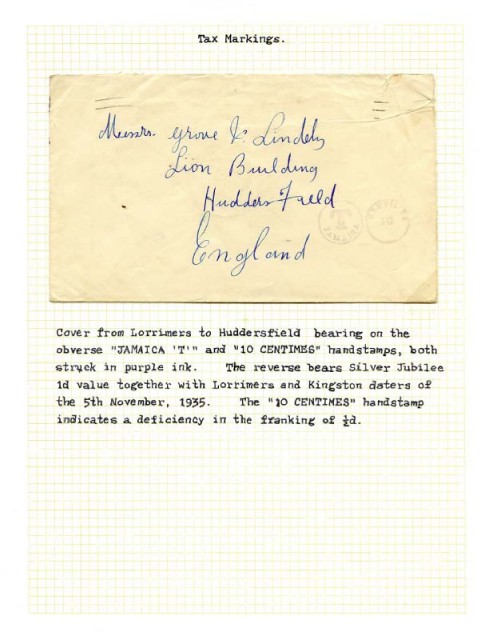 Tax Markings.
Messrs. Grove & Lindley
Lion Building
Huddersfield
England
T
JAMAICA
10
Cover from Lorrimers to Huddersfield bearing on the
obverse "JAMAICA 'T'" and "10 CENTIMES" handstamps, both
struck in purple ink. The reverse bears Silver Jubilee
1d value together with Lorrimers and Kingston daters of
the 5th November, 1935. The "10 CENTIMES" handstamp
indicates a deficiency in the franking of ½d.